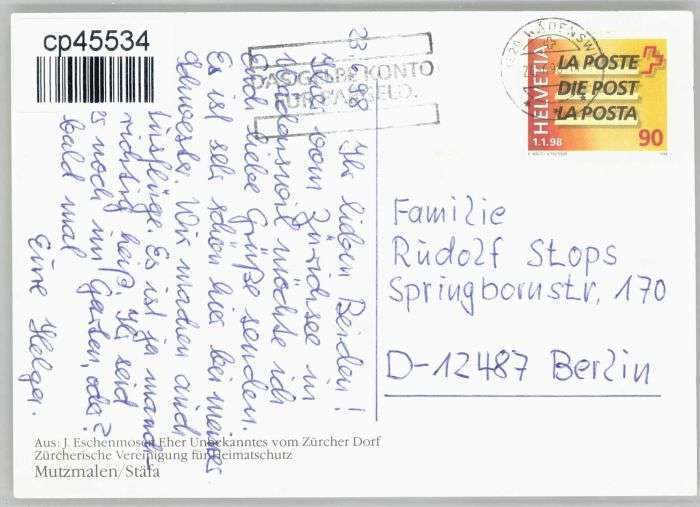 cp45534
DAS GELBE KONTO
FÜR IHR GELD.
WÄDENSW
HELVETIA
1.1.98
LA POSTE
DIE POST
LA POSTA
90
23.6.98
Ihr lieben Beiden!
Hier vom Zürichsee in
Wädenswil möchte ich
Euch liebe Grüße senden.
Es ist sehr schön hier bei meiner
Schwester. Wir machen auch
Ausflüge. Es ist ja manch-
richtig heiß. Ihr seid
es noch im Garten, oder?
bald mal
Eure Helga.
Familie
Rudolf Stops
Springbornstr. 170
D-12487 Berlin
Aus: J. Eschenmoser Eher Unbekanntes vom Zürcher Dorf
Zürcherische Vereinigung für Heimatschutz
Mutzmalen/Stäfa